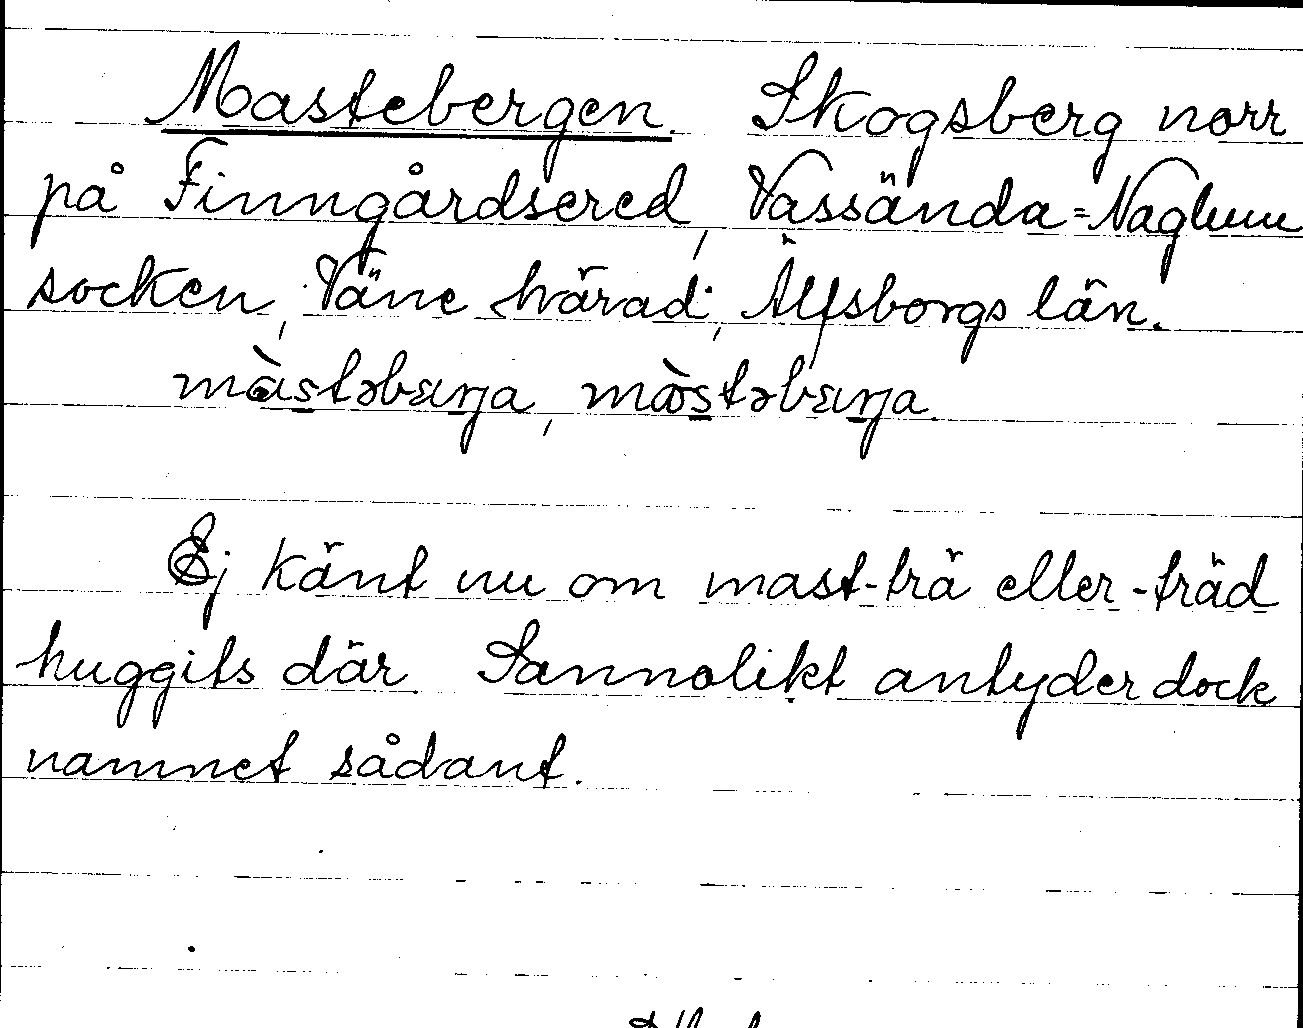 Mastebergen. Skogsberg norr
på Finngårdsered, Vassända=Naglum
socken, Väne härad, Älfsborgs län.
Ej känt nu om mast-trä eller -träd
huggits där. Sannolikt antyder dock
namnet sådant.